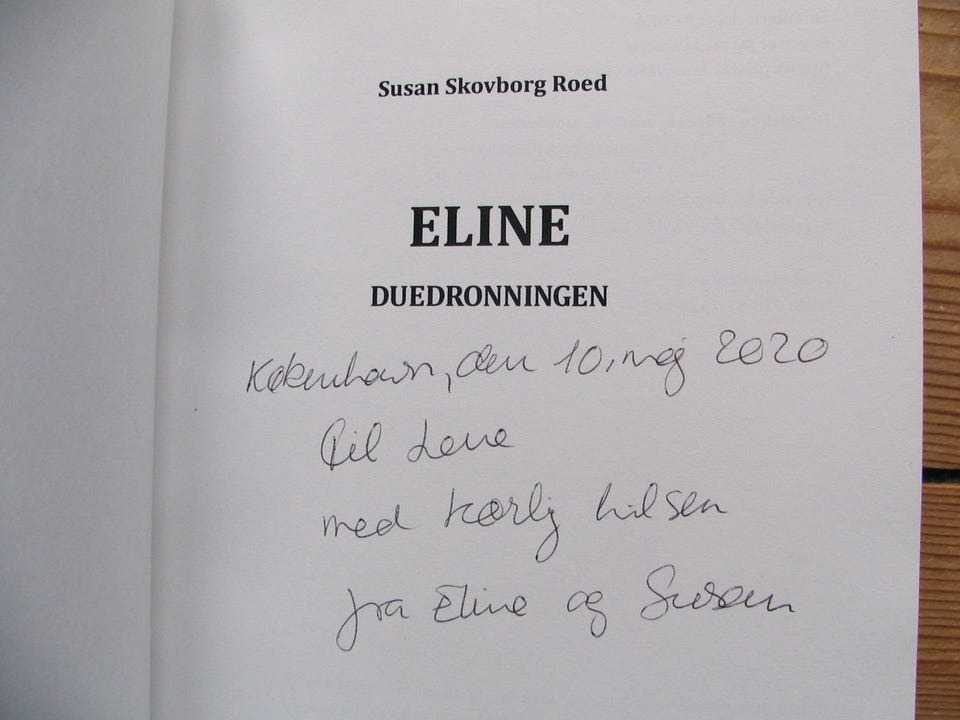 Susan Skovborg Roed
ELINE
DUEDRONNINGEN
København, den 10. maj 2020
Til Lene
med kærlig hilsen
fra Eline og Susan